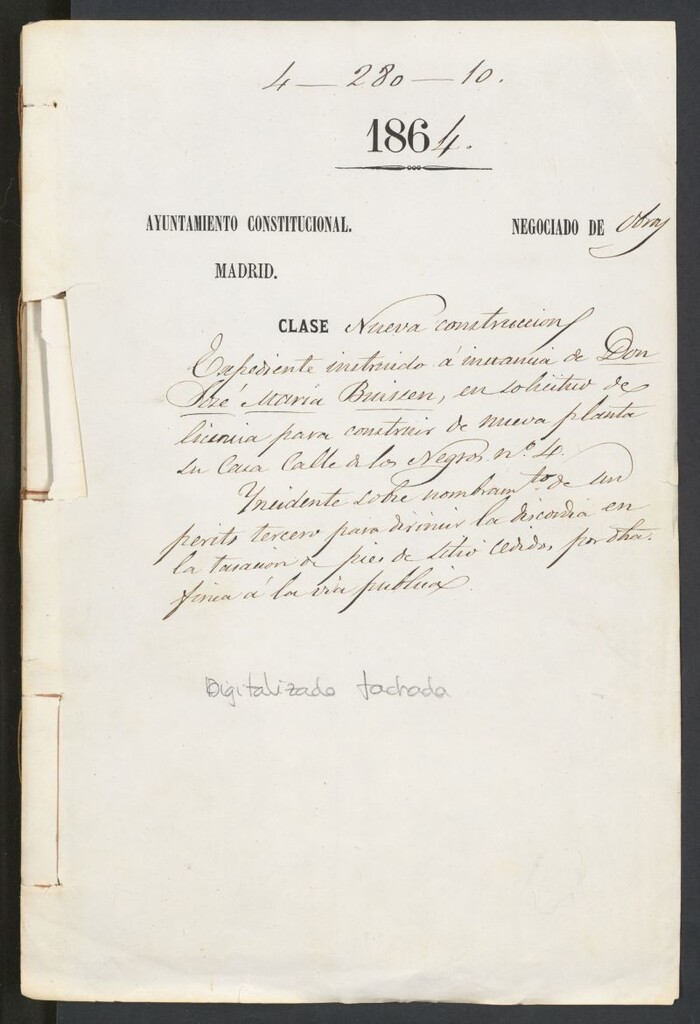 4 — 280 — 10.
1864.
AYUNTAMIENTO CONSTITUCIONAL.
NEGOCIADO DE Obras
MADRID.
CLASE Nueva construccion
Expediente instruido á instancia de Don
José María Brussen, en solicitud de
licencia para construir de nueva planta
su Casa Calle de los Negros nº 4.
Incidente sobre nombramto. de un
perito tercero para dirimir la discordia en
la tasacion de pies de sitio cedidos por dha.
finca á la via publica.
Digitalizado fachada